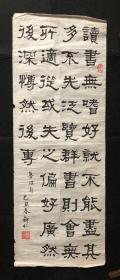 讀書無嗜好就不能盡其
多不先泛覽群書則會無
所適從或失之偏好廣然
後深博然後專
魯迅句